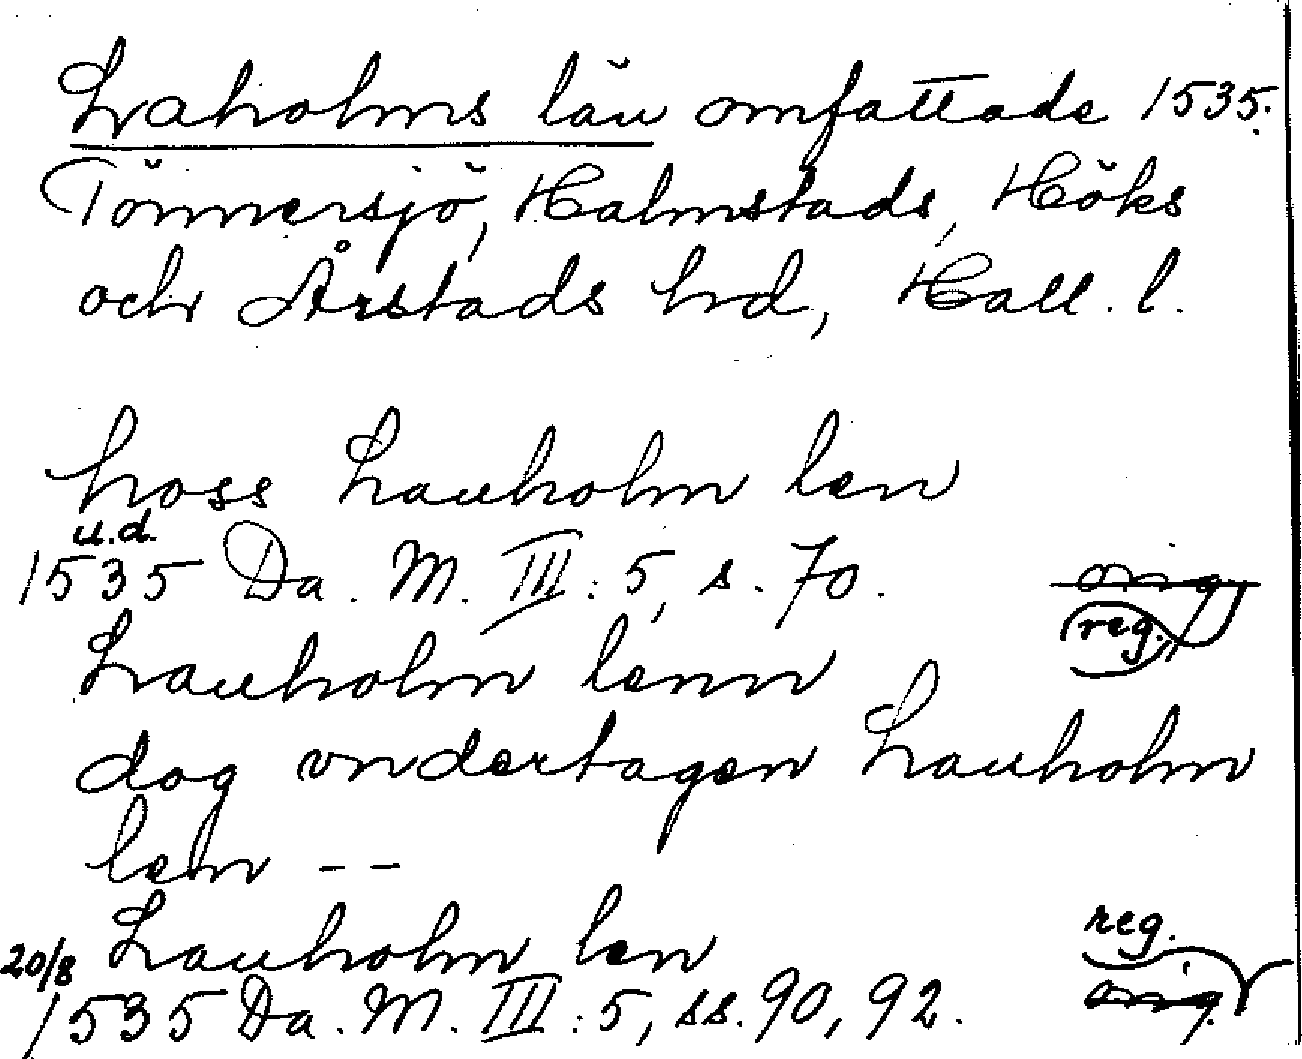 Laholms län omfattade 1535.
Tönnersjö, Halmstads, Höks
och Årstads hd, Hall. l.
hoss Lauholm len
u.d.
1535 Da. M. III: 5, s. 70. orig.
reg.
Lauholm lenn
dog vndertagen Lauholm
len --
Lauholm len reg.
20/8
1535 Da. M. III: 5, ss. 90, 92. orig.